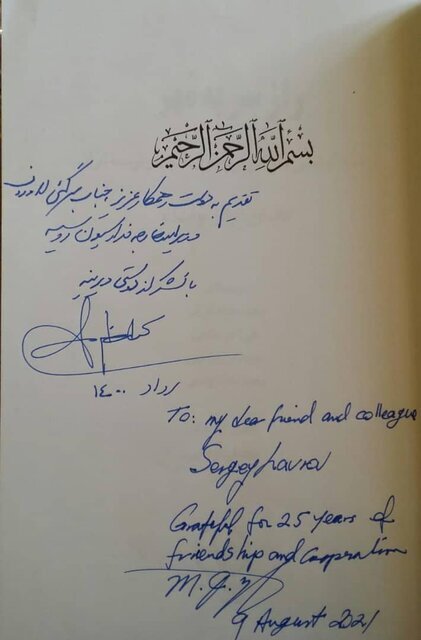 بسم الله الرحمن الرحیم
تقدیم به دوست و همکار عزیز جناب سرگئی لاوروف
وزیر امور خارجه فدراسیون روسیه
با تشکر از دوستی دیرینه
مرداد ۱۴۰۰
To: my dear friend and colleague
Sergey Lavrov
Grateful for 25 years of
friendship and cooperation
9 August 2021